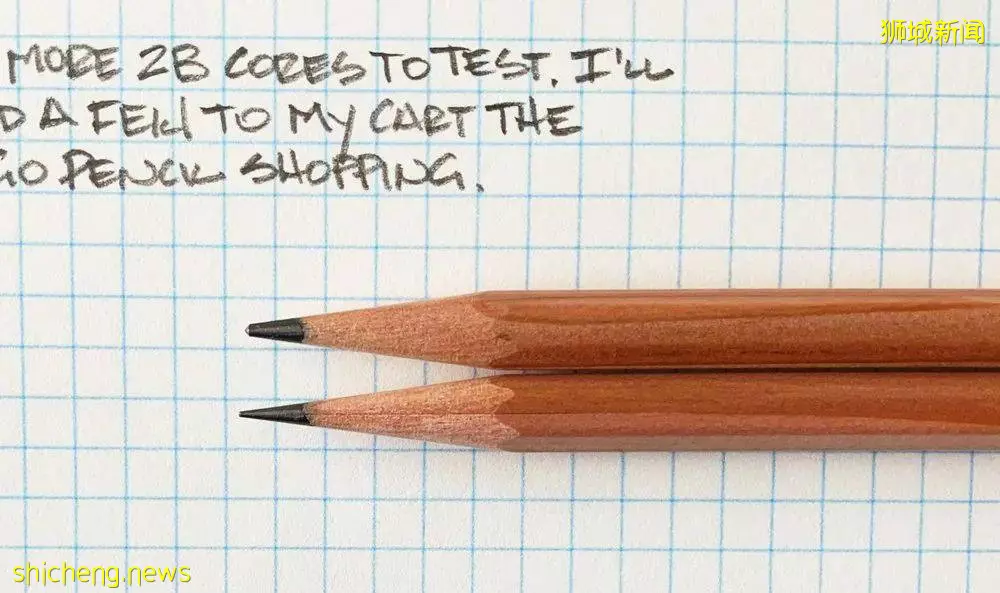 狮城新闻
MORE 2B CORES TO TEST. I'LL
D A FEW TO MY CART THE
GO PENCIL SHOPPING.
shicheng.news